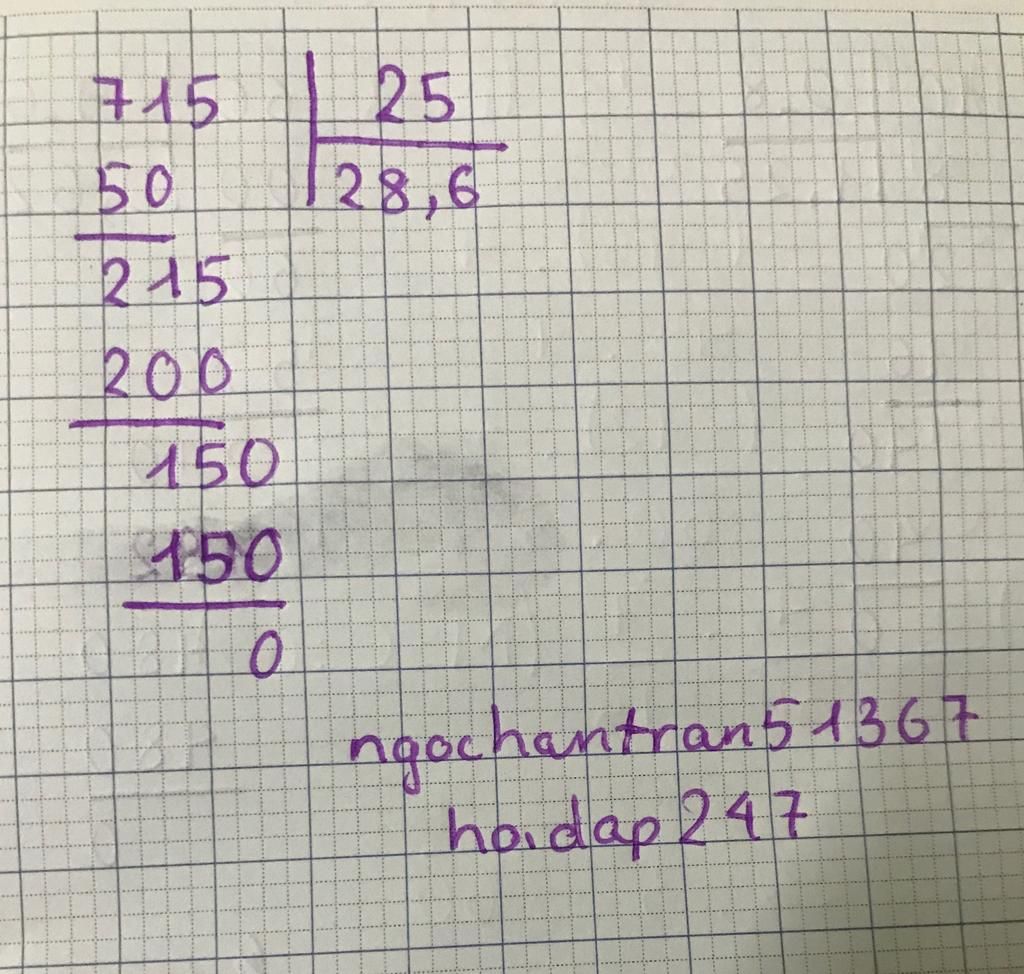 715 25
50 28,6
215
200
150
150
0
ngochantran51367
hoidap247